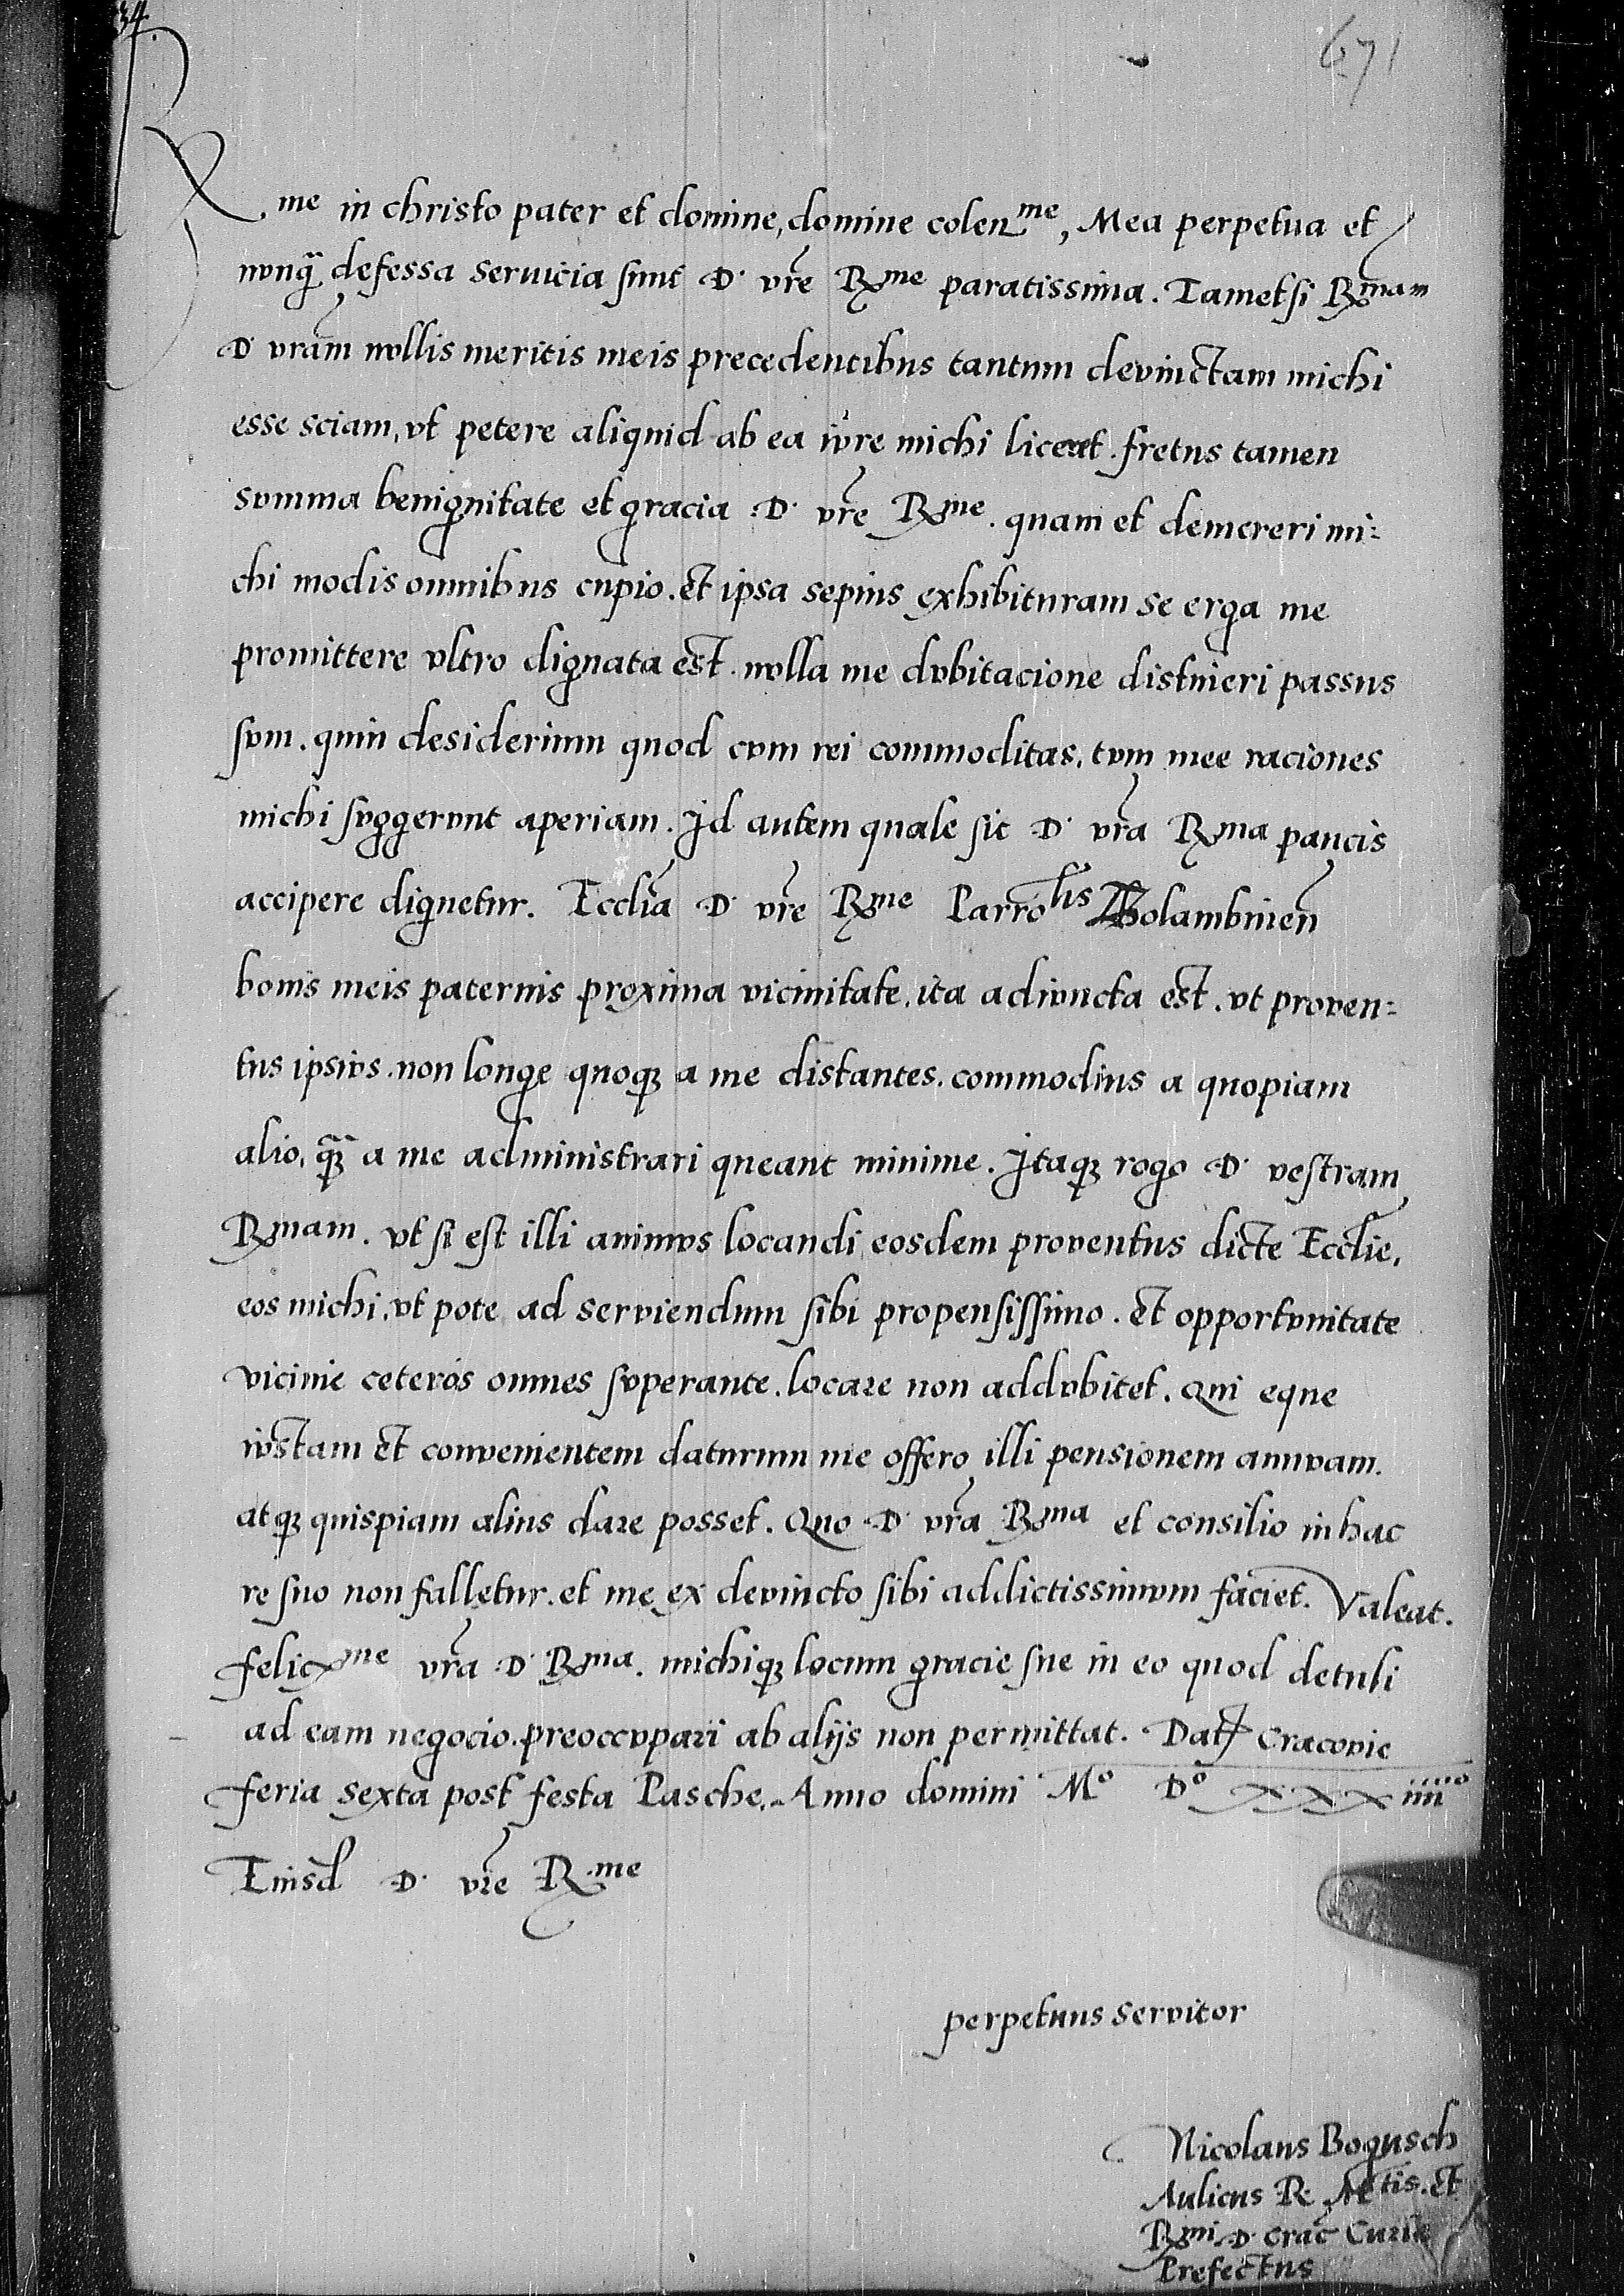 34.
671
R.me in christo pater et domine, domine colen.me, Mea perpetua et
nvnq̃ defessa seruicia sunt D. vr̃e R.me paratissima. Tametsi R.mam
D. vr̃am nvllis meritis meis precedentibus tantum devinctam michi
esse sciam, vt petere aliquid ab ea ivre michi liceat. fretus tamen
svmma benignitate et gracia D. vr̃e R.me. quam et demereri mi:
chi modis omnibus cupio. et ipsa sepius exhibituram se erga me
promittere vltro dignata est. nvlla me dvbitacione distineri passus
svm. quin desiderium quod cvm rei commoditas, tvm mee raciones
michi svggervnt aperiam. Id autem quale sit D. vr̃a R.ma paucis
accipere dignetur. Eccl̃ia D. vr̃e R.me Parro.lis
bonis meis paternis proxima vicinitate, ita adivncta est. vt proven:
tus ipsivs. non longe quoq3 a me distantes. commodius a quopiam
alio, q̃3 a me administrari queant minime. Itaq3 rogo D. vestram
R.mam. vt si est illi animvs locandi eosdem proventus dicte Eccl̃ie,
eos michi, vt pote ad serviendum sibi propensissimo. et opportvnitate
vicinie ceteros omnes svperante. locare non addvbitet. Qui eque
ivstam et convenientem daturum me offero illi pensionem annvam.
atq3 quispiam alius dare posset. Quo D. vr̃a R.ma et consilio in hac
re suo non falletur. et me ex devincto sibi addictissimvm faciet. Valeat.
felicx.me vr̃a D. R.ma. michiq3 locum gracie sue in eo quod detuli
ad eam negocio. preoccvpari ab alijs non permittat. Dat. Cracovie
feria sexta post festa Pasche. Anno domini M.o D.o xxxiiii.o
Eiusd. D. vr̃e R.me
perpetuus servitor
Nicolaus Bogusch
Aulicus R. M.tis. et
R.mi. D. Crac̃ Curie
Prefectus